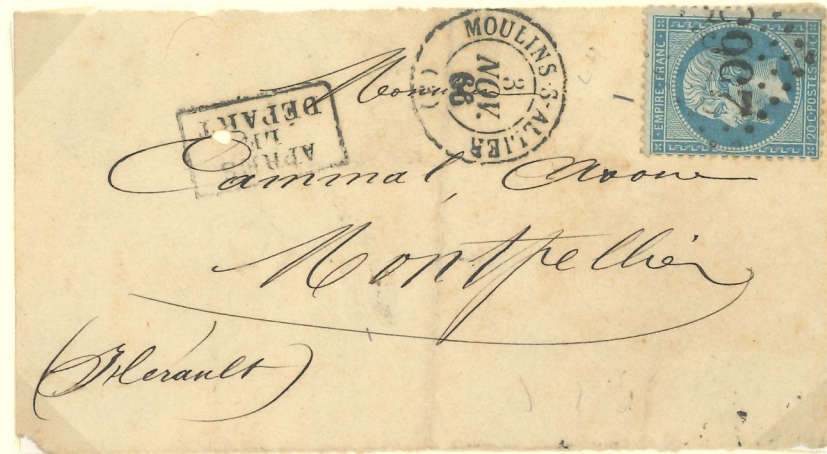 MOULINS-S-ALLIER
3
NOV.
68
EMPIRE · FRANC ·
20 C · POSTES · 20 C
APRÈS
LE
DÉPART
Monsieur
Cammal, Avoué
Montpellier
(Hérault)